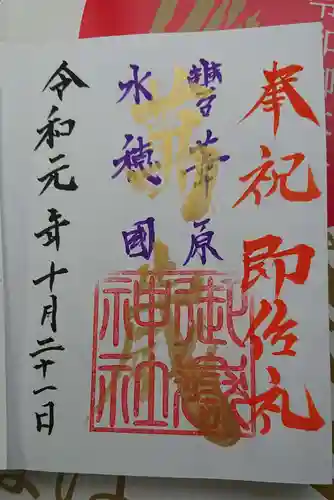 奉祝 即位礼
豐葦原
水穂國
令和元年十月二十一日
御嶽
神社